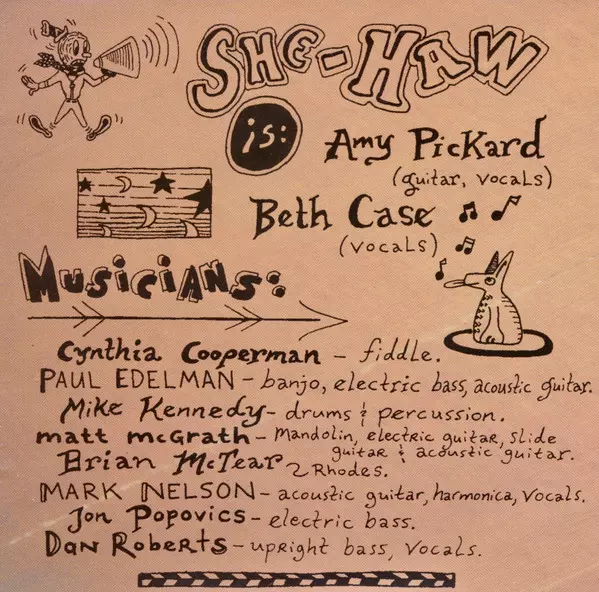 SHE-HAW
is:
Amy Pickard
(guitar, vocals)
Beth Case
(vocals)
Musicians:
Cynthia Cooperman – fiddle.
PAUL EDELMAN – banjo, electric bass, acoustic guitar.
Mike Kennedy – drums & percussion.
matt mcGrath – Mandolin, electric guitar, slide
guitar & acoustic guitar.
Brian McTear
2 Rhodes.
MARK NELSON – acoustic guitar, harmonica, vocals.
Jon Popovics – electric bass.
Dan Roberts – upright bass, vocals.